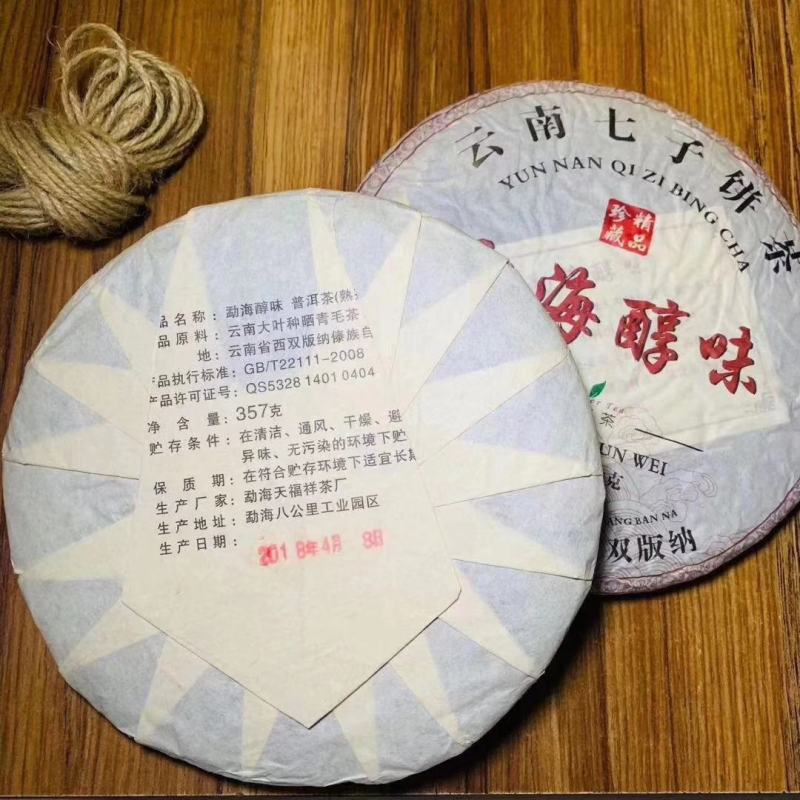 品名称：勐海醇味 普洱茶(熟
品原料：云南大叶种晒青毛茶
地：云南省西双版纳傣族自
产品执行标准：GB/T22111-2008
产品许可证号：QS5328 1401 0404
净 含 量：357克
贮存条件：在清洁、通风、干燥、避
异味、无污染的环境下贮
保 质 期：在符合贮存环境下适宜长期
生产厂家：勐海天福祥茶厂
生产地址：勐海八公里工业园区
生产日期：2018年4月 8日
云南七子饼茶
YUN NAN QI ZI BING CHA
精品
珍藏
海醇味
茶
UN WEI
克
ANG BAN NA
双版纳